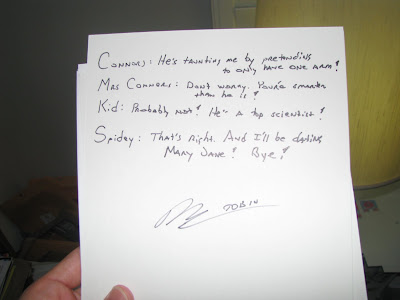 Connors: He's taunting me by pretending
to only have one arm!
Mrs Connors: Don't worry. You're smarter
than he is!
Kid: Probably not! He's a top scientist!
Spidey: That's right. And I'll be dating
Mary Jane! Bye!
TOBIN